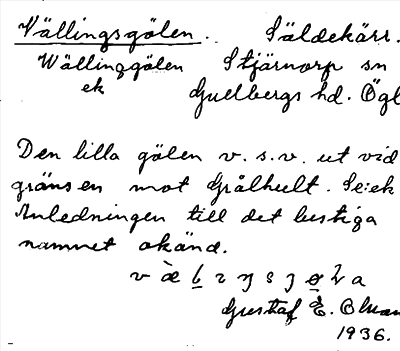 Vällingsgölen. Säldekärr.
Wällinggölen Stjärnorp sn
ek Gullbergs hd. Ögl
Den lilla gölen v.s.v. ut vid
gränsen mot Grålhult. Se: ek
Anledningen till det lustiga
namnet okänd.
Gustaf E.
1936.